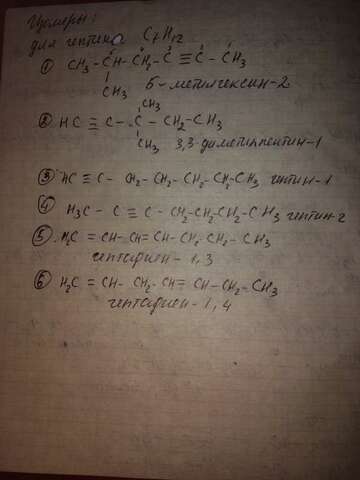 Изомеры:
для гептина C₇H₁₂
① CH₃ - CH - CH₂ - C ≡ C - CH₃
CH₃ 5-метилгексин-2
CH₃
② HC ≡ C - C - CH₂ - CH₃
CH₃ 3,3-диметилпентин-1
③ HC ≡ C - CH₂ - CH₂ - CH₂ - CH₂ - CH₃ гептин-1
④ H₃C - C ≡ C - CH₂ - CH₂ - CH₂ - CH₃ гептин-2
⑤ H₂C = CH - CH = CH - CH₂ - CH₂ - CH₃
гептадиен - 1,3
⑥ H₂C = CH - CH₂ - CH = CH - CH₂ - CH₃
гептадиен - 1,4